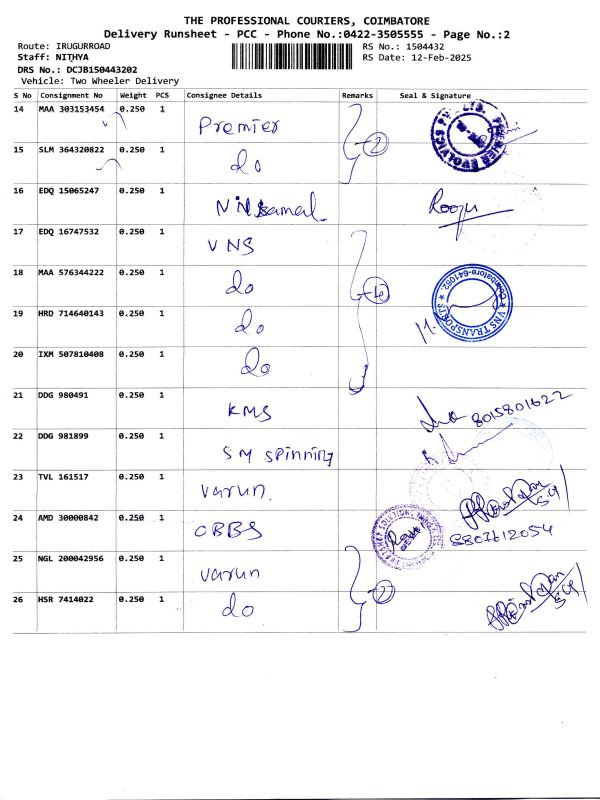 THE PROFESSIONAL COURIERS, COIMBATORE
Delivery Runsheet - PCC - Phone No.:0422-3505555 - Page No.:2
Route: IRUGURROAD RS No.: 1504432
Staff: NITHYA RS Date: 12-Feb-2025
DRS No.: DCJB150443202
Vehicle: Two Wheeler Delivery
S No Consignment No Weight PCS Consignee Details Remarks Seal & Signature
14 MAA 303153454 0.250 1 Premier
15 SLM 364320822 0.250 1 do 2
16 EDQ 15065247 0.250 1
17 EDQ 16747532 0.250 1 VNS
18 MAA 576344222 0.250 1 do 4 Coimbatore-641062 VNS TRANSPORTS
19 HRD 714640143 0.250 1 do
20 IXM 507810408 0.250 1 do
21 DDG 980491 0.250 1 KMS 8015801622
22 DDG 981899 0.250 1 SM spinning
23 TVL 161517 0.250 1 varun.
24 AMD 30000842 0.250 1 OBBS 8807612054
25 NGL 200042956 0.250 1 varun
26 HSR 7414022 0.250 1 do 2